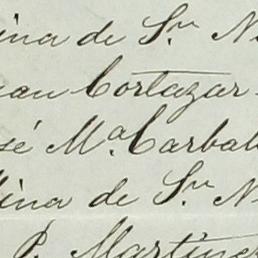 ina de S.n N
uan Cortazar
sé M.a Carbal
lina de S.n N
P. Martinez